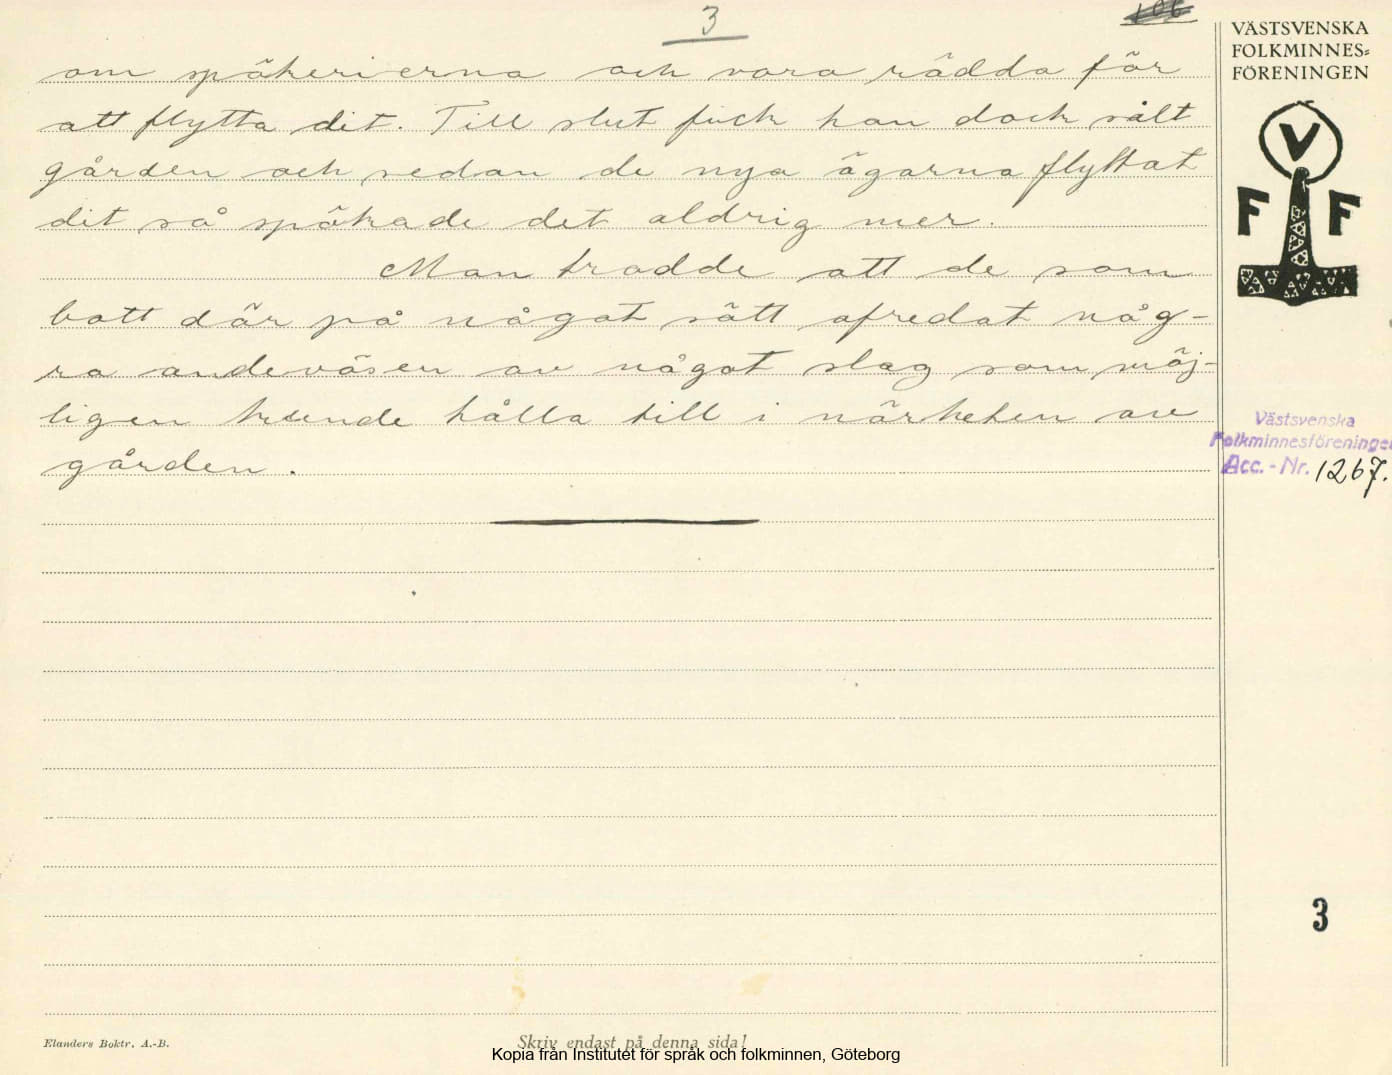 3
106
om spökerierna och voro rädda för
att flytta dit. Till slut fick han dock sålt
gården och sedan de nya ägarna flyttat
dit så spökade det aldrig mer.
Man trodde att de som
bott där på något sätt ofredat någ-
ra andeväsen av något slag som möj-
ligen kunde hålla till i närheten av
gården.
VÄSTSVENSKA
FOLKMINNES=
FÖRENINGEN
V
F F
Västsvenska
Folkminnesföreningen
Acc. - Nr. 1267.
3
Elanders Boktr. A.-B.
Skriv endast på denna sida!
Kopia från Institutet för språk och folkminnen, Göteborg